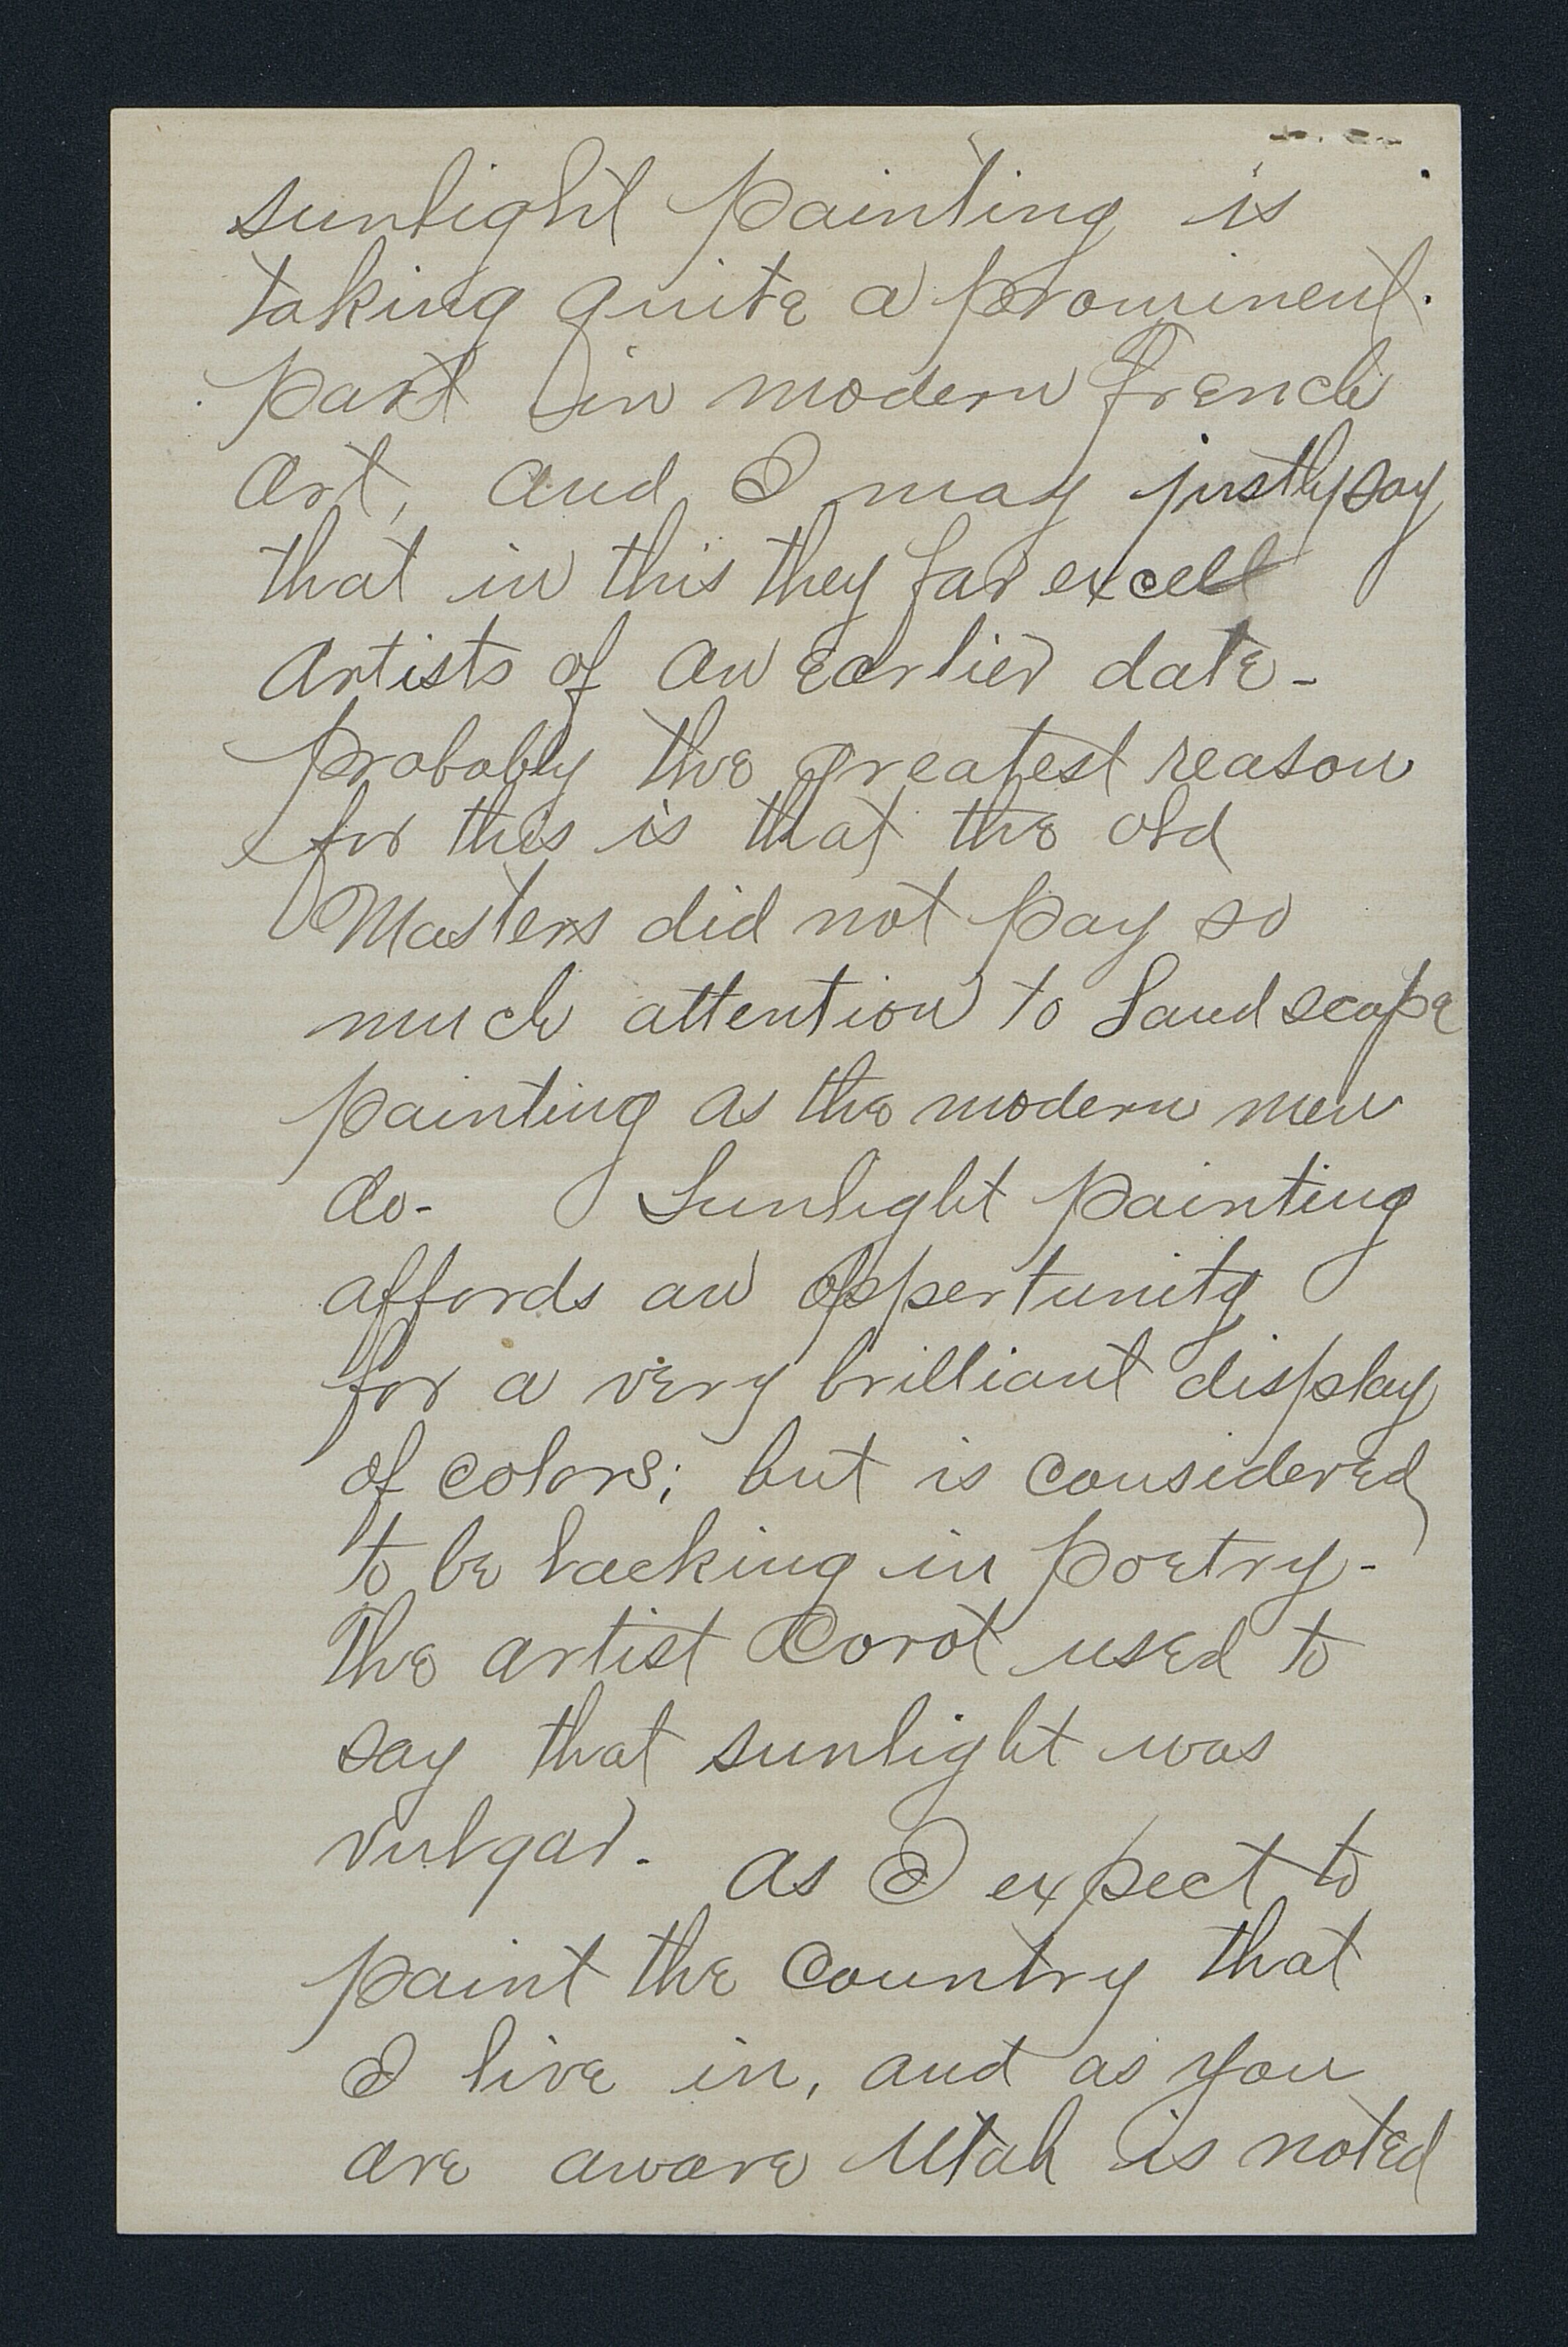 sunlight painting is
taking quite a prominent
part in modern French
art, and I may justly say
that in this they far excell
artists of an earlier date-
Probably the greatest reason
for this is that the old
Masters did not pay so
much attention to Landscape
painting as the modern men
do- Sunlight painting
affords an oppertunity
for a very brilliant display
of colors; but is considered
to be lacking in poetry-
The artist Corot used to
say that sunlight was
vulgar. As I expect to
paint the country that
I live in, and as you
are aware Utah is noted